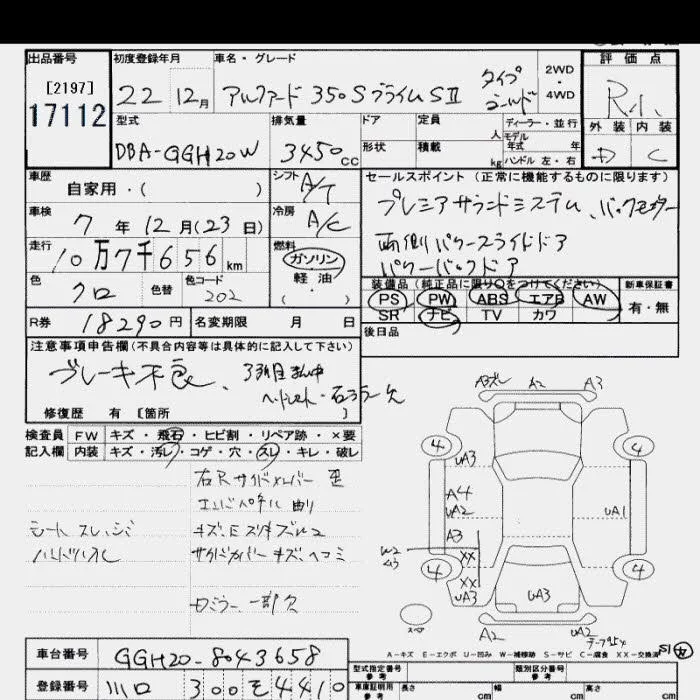 出品番号
[2197]
17112
初度登録年月
22 12月
車名・グレード
アルファード 350S プライムSII タイプゴールド
2WD
・
4WD
評価点
R1
外装 内装
D C
型式
DBA-GGH20W
排気量
3450cc
ドア
形状
定員
人
積載
kg
ディーラー・並行
モデル
年式 年
ハンドル 左・右
車歴
自家用・( )
シフト
A/T
車検
7年12月(23日)
冷房
A/C
走行
10万7千656km
燃料
ガソリン
・
軽油
・
( )
色
クロ
色替
色コード
202
セールスポイント(正常に機能するものに限ります)
プレミアサウンドシステム、バックモニター
両側パワースライドドア
パワーバックドア
装備品(純正品に限り〇をつけてください)
PS PW ABS エアB AW
SR ナビ TV カワ
新車保証書
有・無
後日品
R券
18290円
名変期限 月 日
注意事項申告欄(不具合内容等は具体的に記入して下さい)
ブレーキ不良、
修復歴 有 [箇所 ]
検査員
記入欄
FW キズ・飛石・ヒビ割・リペア跡・×要
内装 キズ・汚レ・コゲ・穴・スレ・キレ・破レ
右Rサイドメンバー
エンドパネル 曲り
シート スレ、
ハンドルスレ
サイドカバーキズ、ヘコミ
ミラー 一部欠
A3 A2 A3
4 4
UA3
A4
UA2
UA1
A3
W2
XX
4 4
XX
UA3
UA3
スペア
A2 UA2
A-キズ E-エクボ U-凹み W-補修跡 S-サビ C-腐食 XX-交換済
車台番号
GGH20-8043658
登録番号
川口 300 そ 4410
型式指定番号
参考
類別区分番号
参考
車庫証明用
参考
長さ
cm
幅
cm
高さ
cm